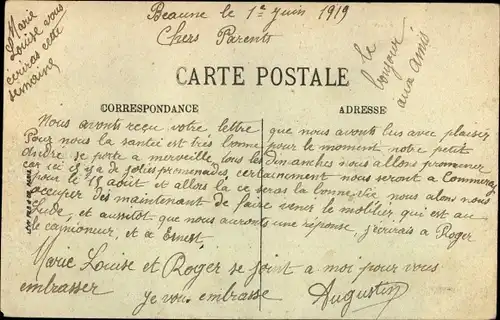 Beaune le 1er juin 1919
Chers Parents
Marie
Louise vous
écriras cette
semaine
le
bonjour
aux amis
CARTE POSTALE
CORRESPONDANCE
ADRESSE
Nous avonts reçu votre lettre que nous avonts lus avec plaisir
Pour nous la santei est très bonne pour le moment notre petit
André se porte a merveille tous les dimanches nous allons promener
car ici il y a de jolies promenades, certainement nous seront a Commercy
pour le 15 août et allors la ce seras la bonne vie nous alons nous
occuper dès maintenant de faire venir le mobilier qui est au
Bude, et aussitot que nous auronts une réponse, j'ecrirais a Roger
le camioneur, et a Ernest,
Marie Louise et Roger se joint a moi pour vous
embrasser je vous embrasse Augustin